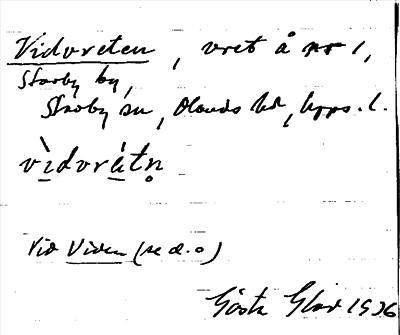 Vidvreten, vret å nr 1,
Skavby by,
Skavby sn, Olands hd, Upps. l.
vìdvrétn̥
Vid Viden (se d. o)
Gösta Glad 1936